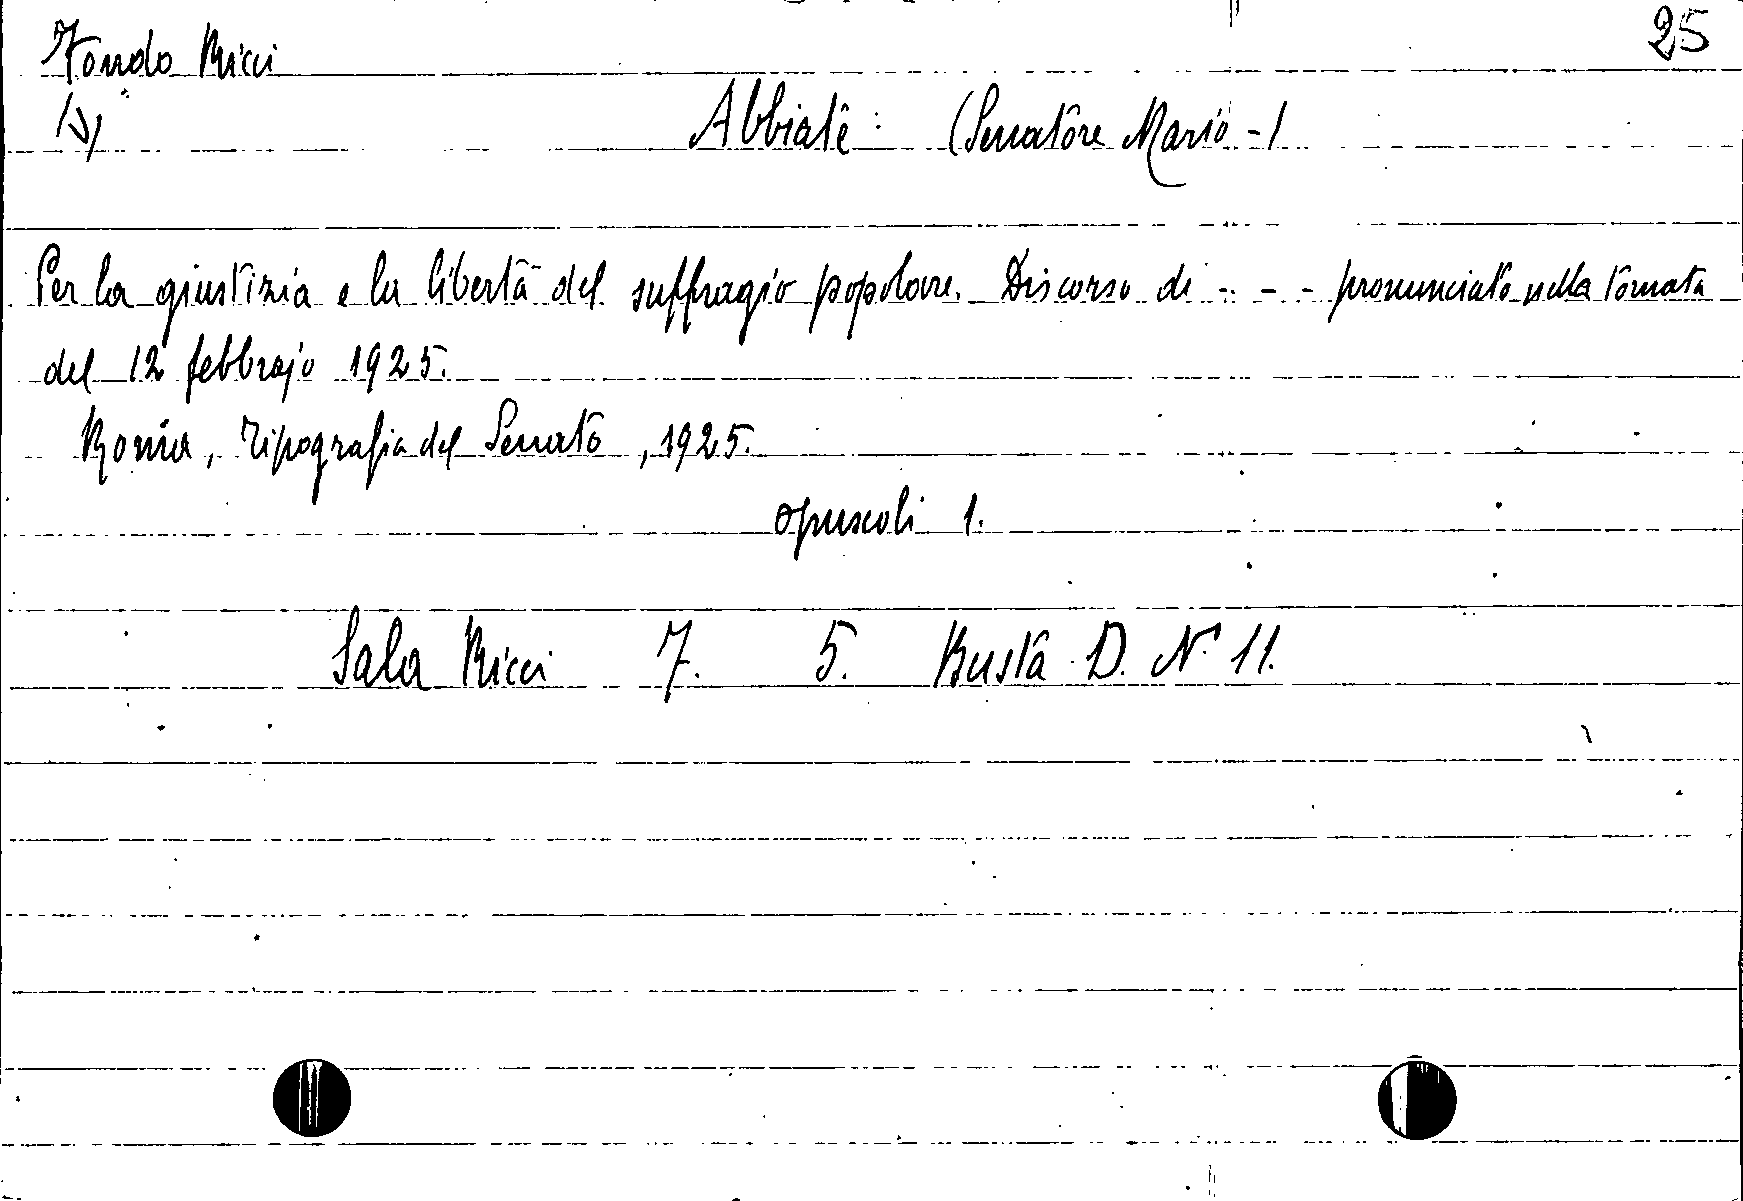 Fondo Ricci
25
Abbiate: (Senatore Mario -)
Per la giustizia e la libertà del suffragio popolare. Discorso di - - - pronunciato nella tornata
del 12 febbrajo 1925.
Roma, Tipografia del Senato, 1925.
opuscoli 1.
Sala Ricci 7. 5. Busta D. N. 11.